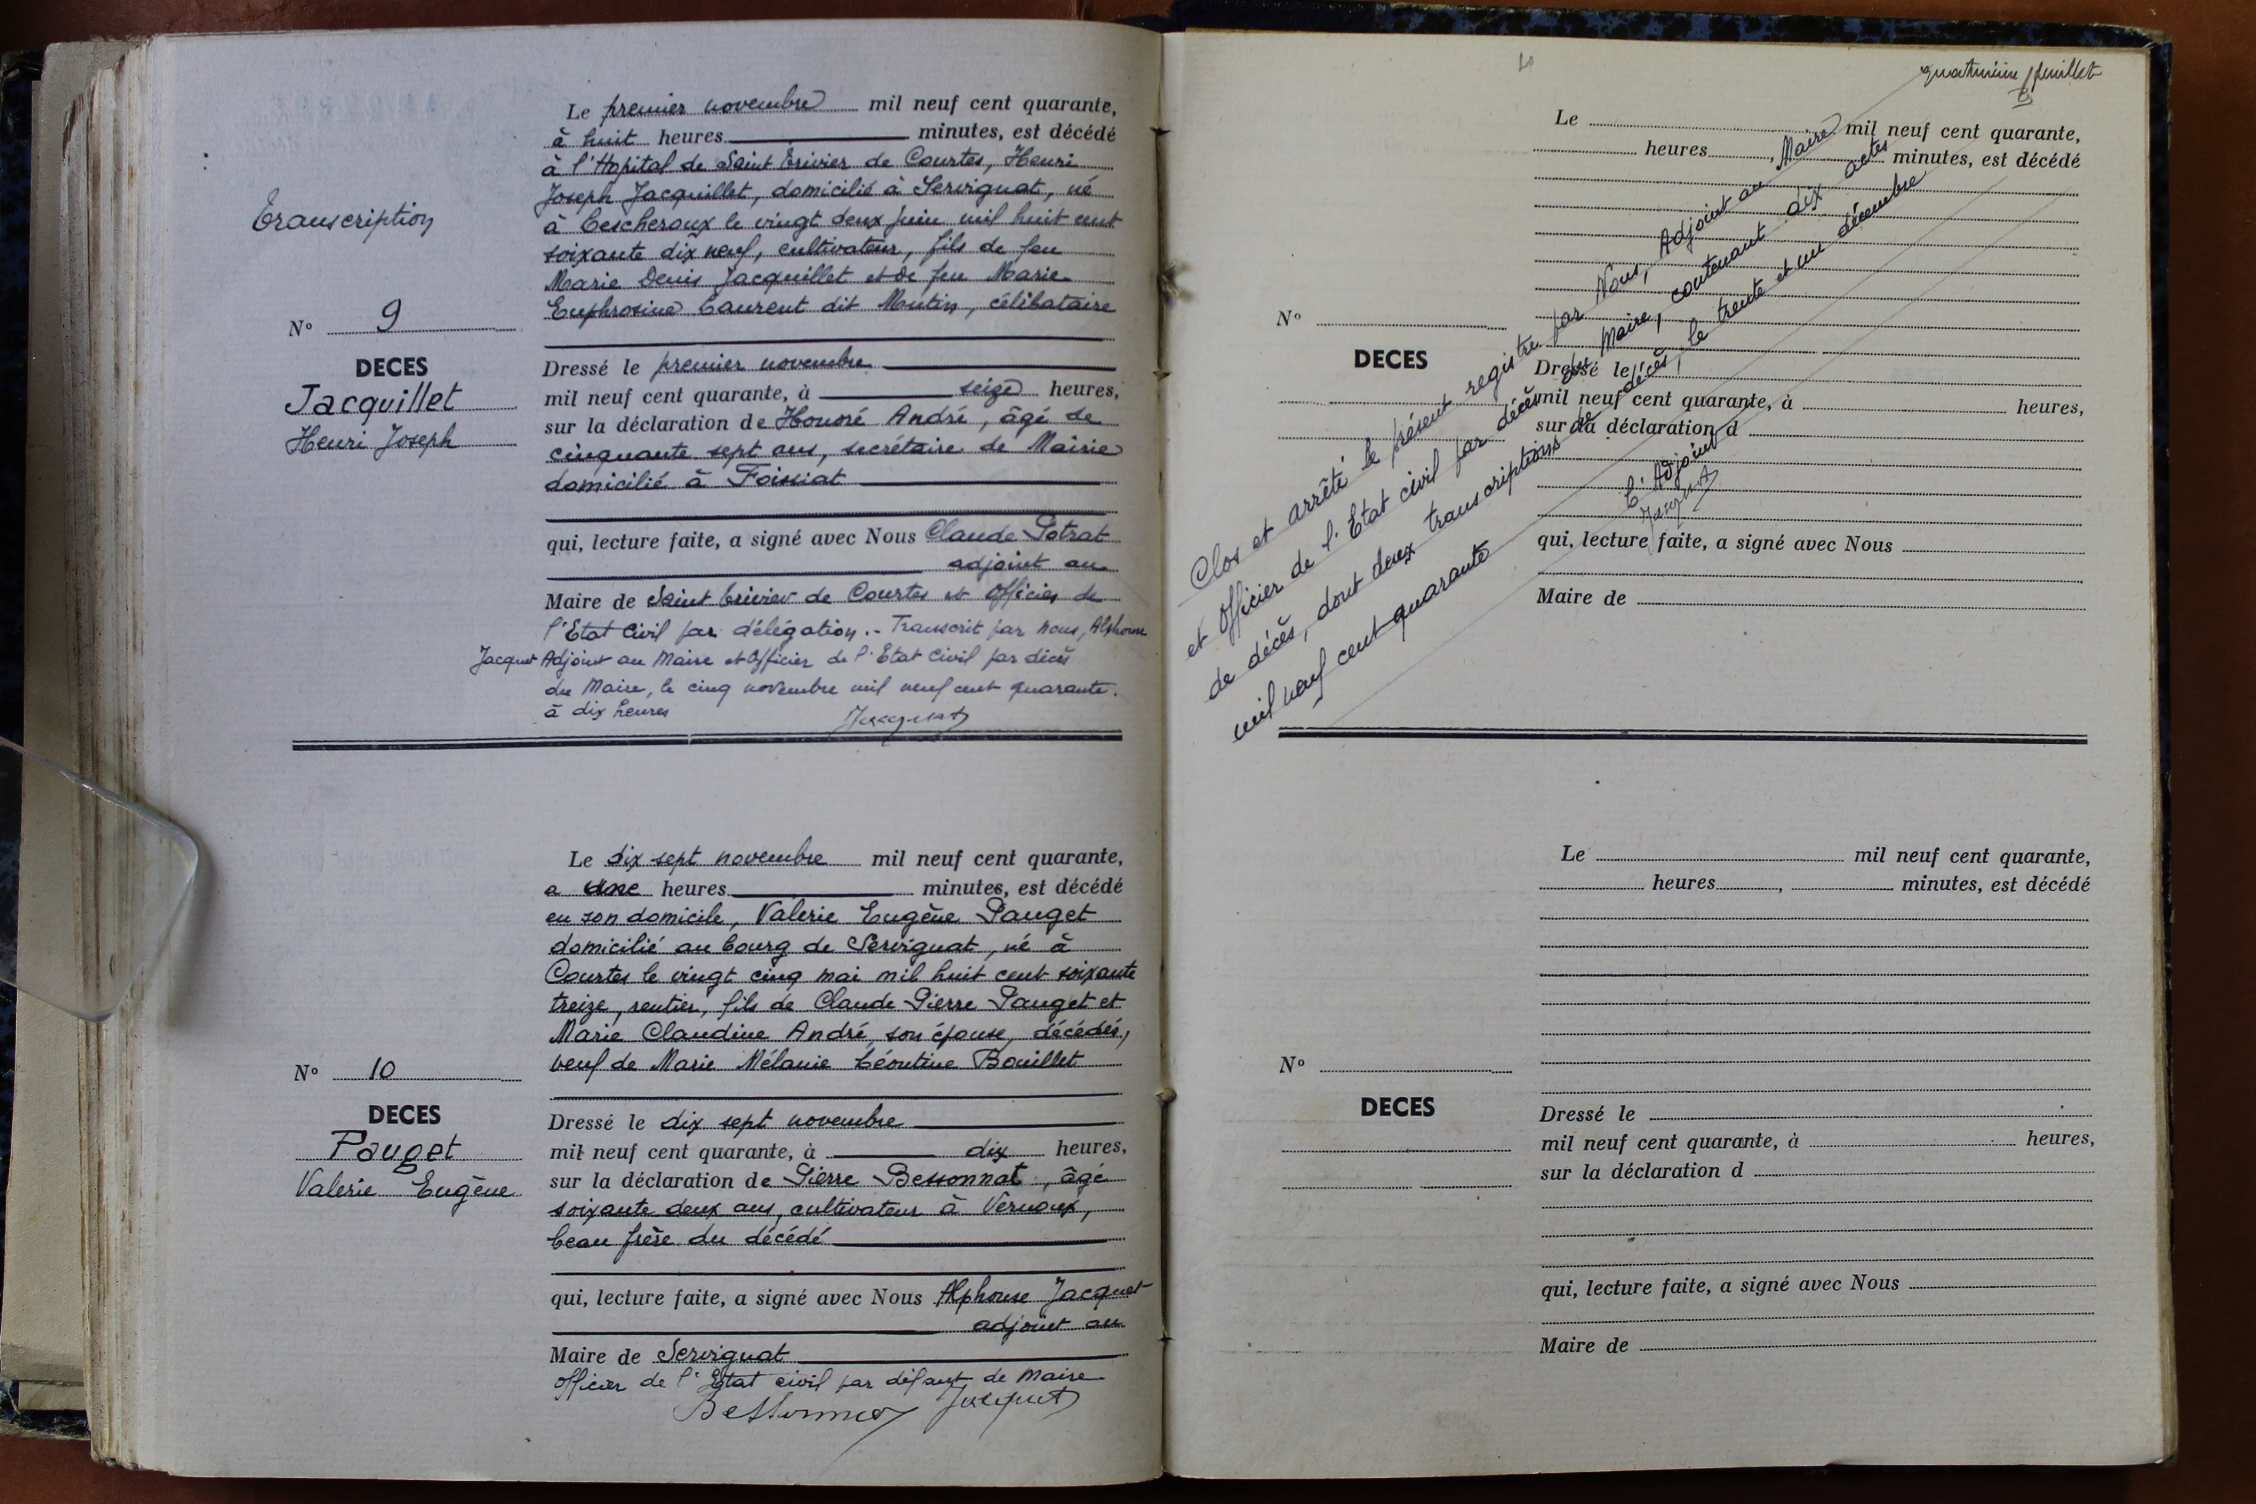 Transcription
N° 9
DECES
Jacquillet
Henri Joseph
Le premier novembre mil neuf cent quarante,
à huit heures minutes, est décédé
à l'Hopital de Saint Trivier de Courtes, Henri
Joseph Jacquillet, domicilié à Servignat, né
à Lescheroux le vingt deux juin mil huit cent
soixante dix neuf, cultivateur, fils de feu
Marie Denis Jacquillet et de feu Marie
Euphrosine Laurent dit Mutin, célibataire
Dressé le premier novembre
mil neuf cent quarante, à seize heures,
sur la déclaration de Honoré André, âgé de
cinquante sept ans, secrétaire de Mairie
domicilié à Foissiat
qui, lecture faite, a signé avec Nous Claude Potrat
adjoint au
Maire de Saint Trivier de Courtes et Officier de
l'Etat Civil par délégation.- Transcrit par nous, Alphonse
Jacquet Adjoint au Maire et Officier de l'Etat Civil par décès
du Maire, le cinq novembre mil neuf cent quarante.
à dix heures
Jacquet
N° 10
DECES
Pauget
Valerie Eugène
Le dix sept novembre mil neuf cent quarante,
a une heures minutes, est décédé
en son domicile, Valerie Eugène Pauget
domicilié au bourg de Servignat, né à
Courtes le vingt cinq mai mil huit cent soixante
treize, rentier, fils de Claude Pierre Pauget et
Marie Claudine André, son épouse, décédés,
veuf de Marie Mélanie Léontine Bouillet
Dressé le dix sept novembre
mil neuf cent quarante, à dix heures,
sur la déclaration de Pierre Bessonnat, âgé
soixante deux ans, cultivateur à Vernoux,
beau frère du décédé
qui, lecture faite, a signé avec Nous Alphonse Jacquet
adjoint au
Maire de Servignat
Officier de l'Etat civil par défaut de Maire
Bessonnat Jacquet
quatrième feuillet
Le mil neuf cent quarante,
heures, minutes, est décédé
N°
DECES
Dressé le
mil neuf cent quarante, à heures,
sur la déclaration d
qui, lecture faite, a signé avec Nous
Maire de
Clos et arrêté le présent registre par Nous, Adjoint au Maire
et Officier de l'Etat civil par décès du Maire, contenant dix actes
de décès, dont deux transcriptions de décès, le trente et un décembre
mil neuf cent quarante
L'Adjoint
Jacquet
Le mil neuf cent quarante,
heures, minutes, est décédé
N°
DECES
Dressé le
mil neuf cent quarante, à heures,
sur la déclaration d
qui, lecture faite, a signé avec Nous
Maire de